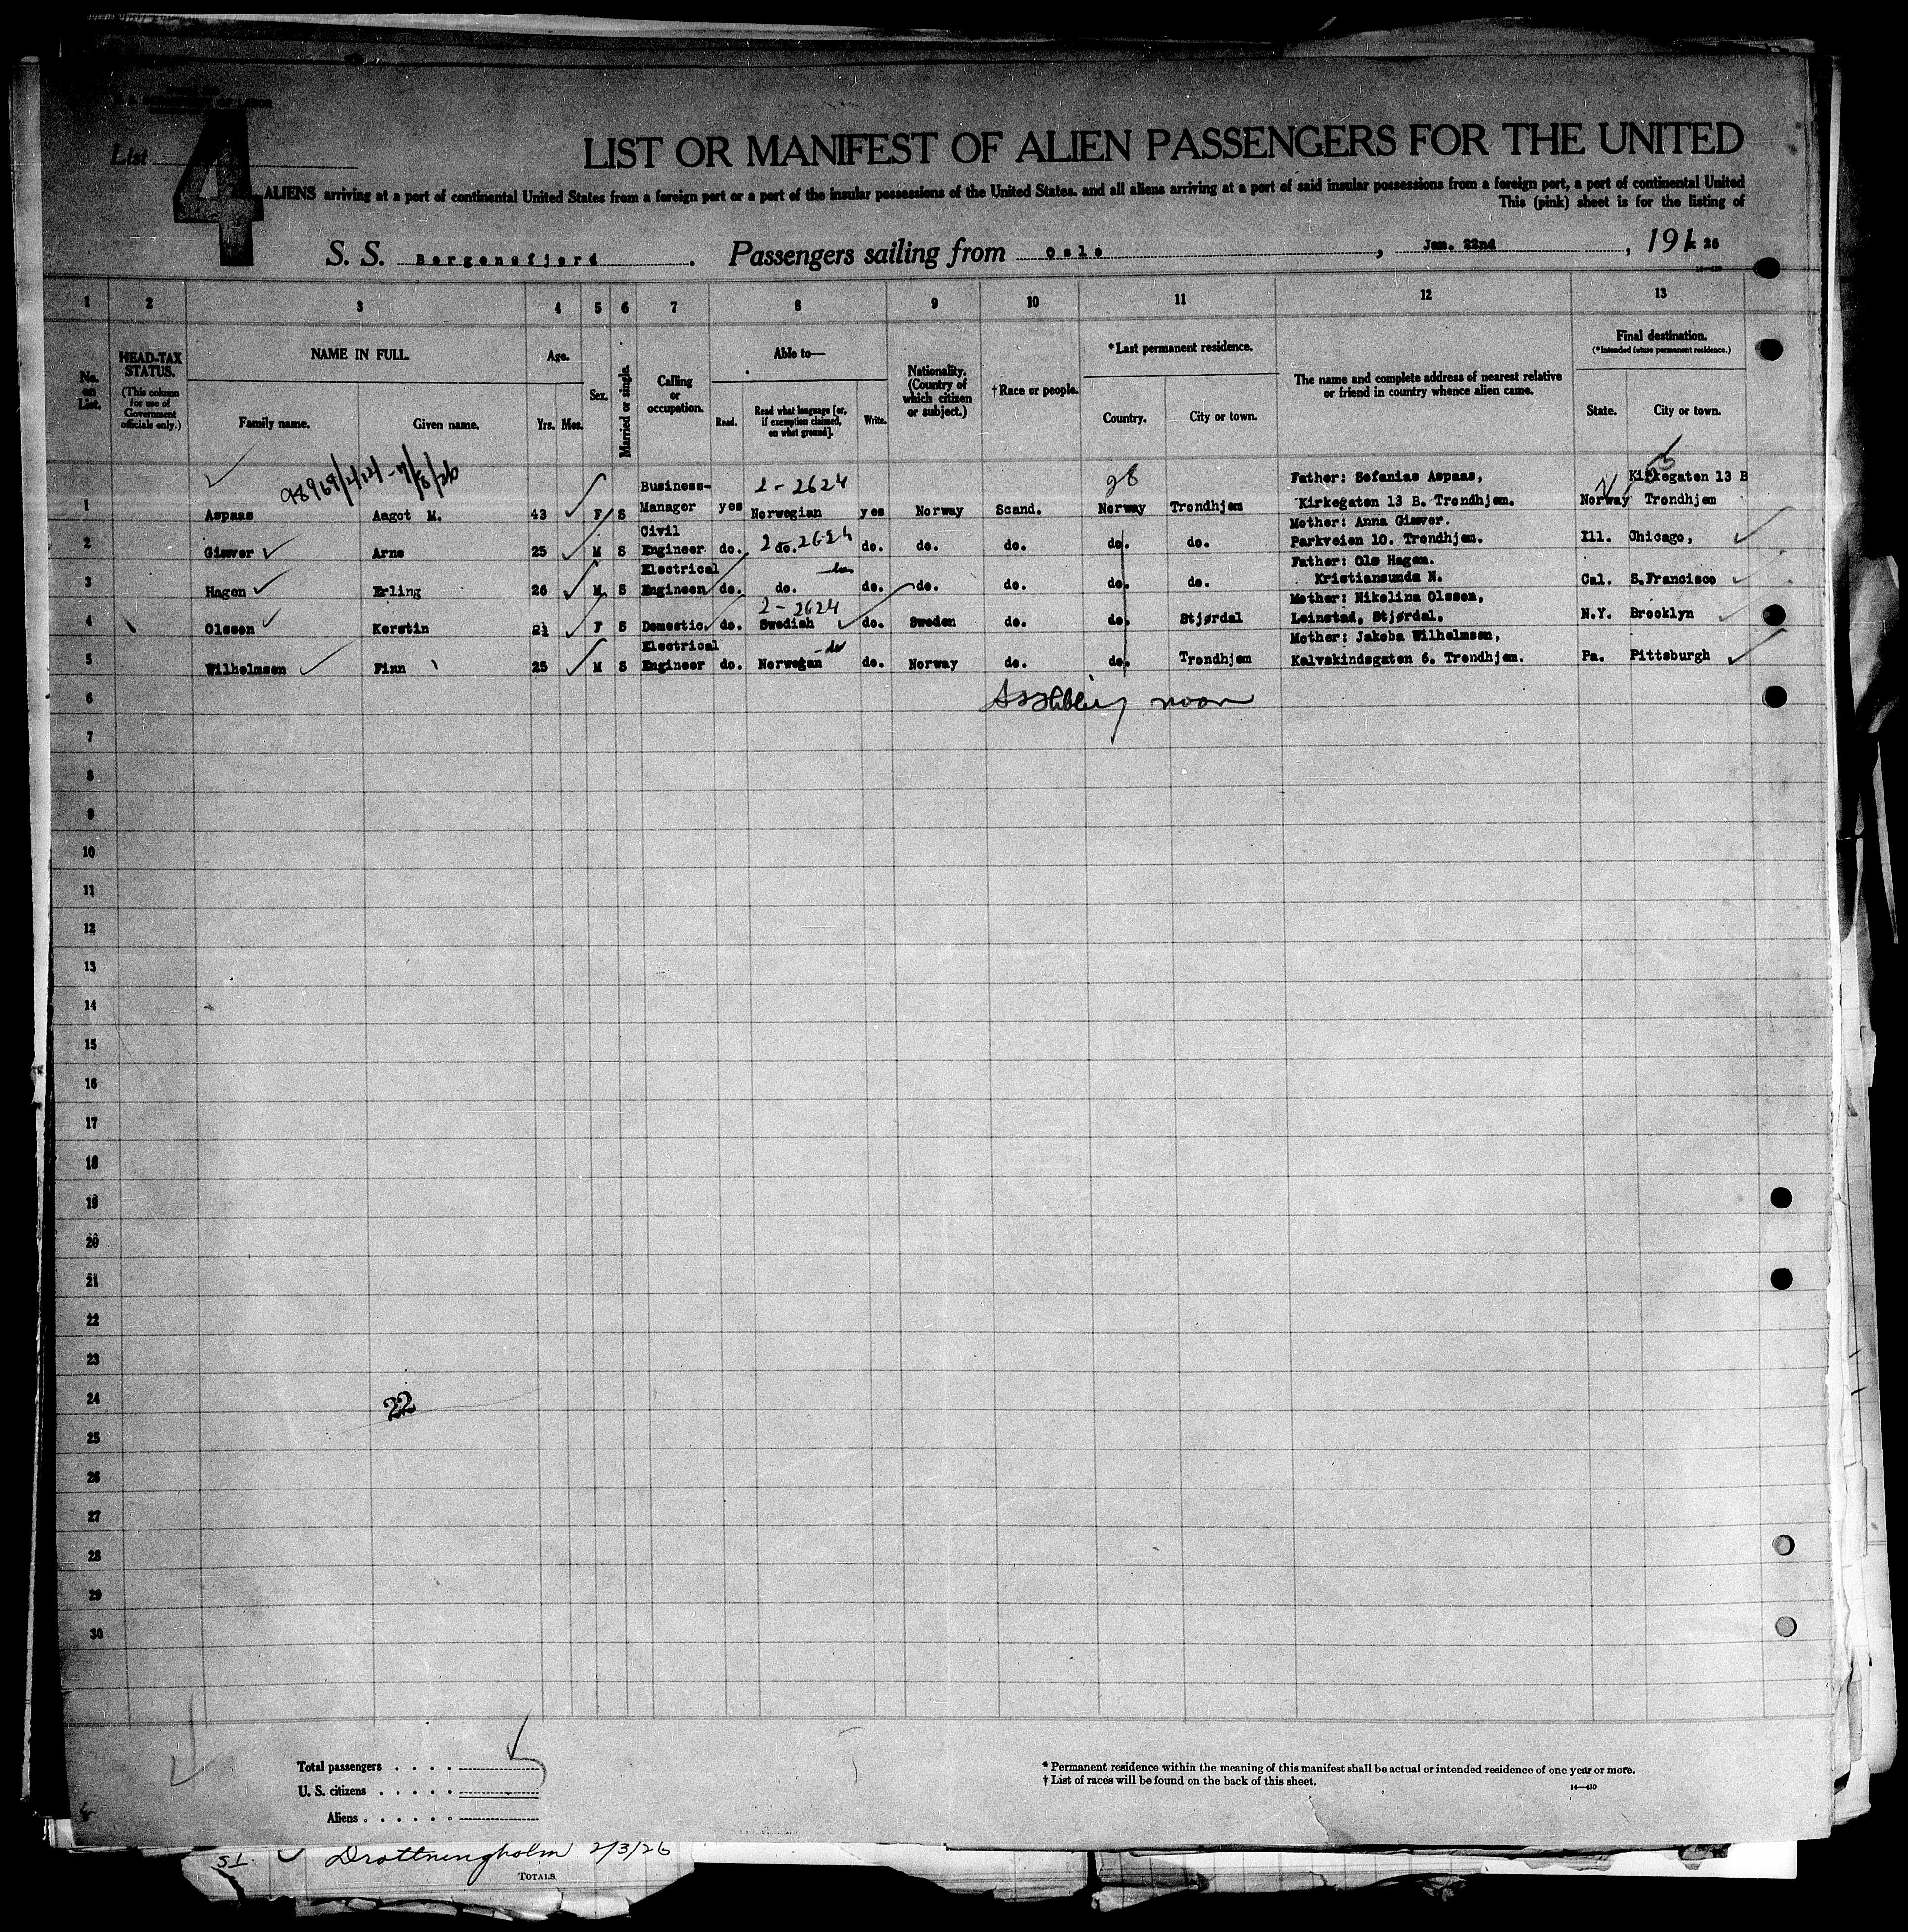 List
4
LIST OR MANIFEST OF ALIEN PASSENGERS FOR THE UNITED
ALIENS arriving at a port of continental United States from a foreign port or a port of the insular possessions of the United States, and all aliens arriving at a port of said insular possessions from a foreign port, a port of continental United
This (pink) sheet is for the listing of
S. S. Bergensfjord. Passengers sailing from Oslo, Jan. 22nd, 191 26
1 2 3 4 5 6 7 8 9 10 11 12 13
No. on List.
HEAD-TAX STATUS.
(This column for use of Government officials only.)
NAME IN FULL.
Family name. Given name.
Age.
Yrs. Mos.
Sex.
Married or single.
Calling or occupation.
Able to—
Read. Read what language [or, if exemption claimed, on what ground]. Write.
Nationality. (Country of which citizen or subject.)
†Race or people.
*Last permanent residence.
Country. City or town.
The name and complete address of nearest relative or friend in country whence alien came.
Final destination.
(*Intended future permanent residence.)
State. City or town.
2-2624 28
Business- Father: Sefanias Aspaas, Kirkegaten 13 B
1 Aspaas Aagot M. 43 F S Manager yes Norwegian yes Norway Scand. Norway Trondhjem Kirkegaten 13 B. Trondhjem. Norway Trondhjem
Civil 2-2624 Mother: Anna Gisver.
2 Gisver Arne 25 M S Engineer do. do. do. do. do. do. do. Parkveien 10. Trondhjem. Ill. Chicago,
Electrical Father: Ole Hagen.
3 Hagen Erling 26 M S Engineer do. do. do. do. do. do. do. Kristiansunds N. Cal. S.Francisco
2-2624 Mother: Nikolina Olssen,
4 Olssen Kerstin 21 F S Domestic do. Swedish do. Sweden do. do. Stjørdal Leinstad, Stjørdal. N.Y. Brooklyn
Electrical Mother: Jakoba Wilhelmsen,
5 Wilhelmsen Finn 25 M S Engineer do. Norwegan do. Norway do. do. Trondhjem Kalvskindsgaten 6. Trondhjem. Pa. Pittsburgh
6
7
8
9
10
11
12
13
14
15
16
17
18
19
20
21
22
23
24
22
25
26
27
28
29
30
Total passengers
U. S. citizens
Aliens
* Permanent residence within the meaning of this manifest shall be actual or intended residence of one year or more.
† List of races will be found on the back of this sheet.
14—430
Drottningholm 2/3/26
TOTALS.